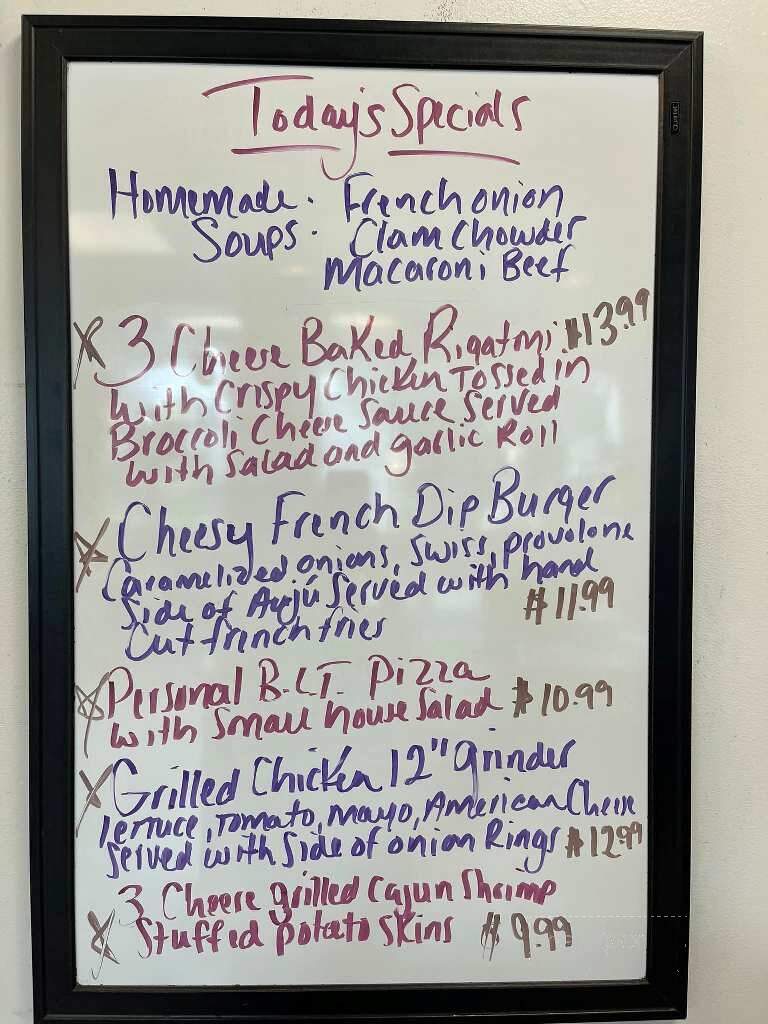 Today's Specials
Homemade. French onion
Soups. Clam Chowder
Macaroni Beef
3 Cheese Baked Rigatoni $13.99
with Crispy Chicken Tossed in
Broccoli Cheese sauce served
with salad and garlic Roll
Cheesy French Dip Burger
Caramelized onions, swiss, provolone
Side of Aujú served with hand
Cut french fries $11.99
Personal B.L.T. Pizza
with Small house Salad $10.99
Grilled Chicken 12" grinder
lettuce, Tomato, mayo, American Cheese
served with side of onion Rings $12.99
3 Cheese grilled Cajun Shrimp
Stuffed potato skins $9.99